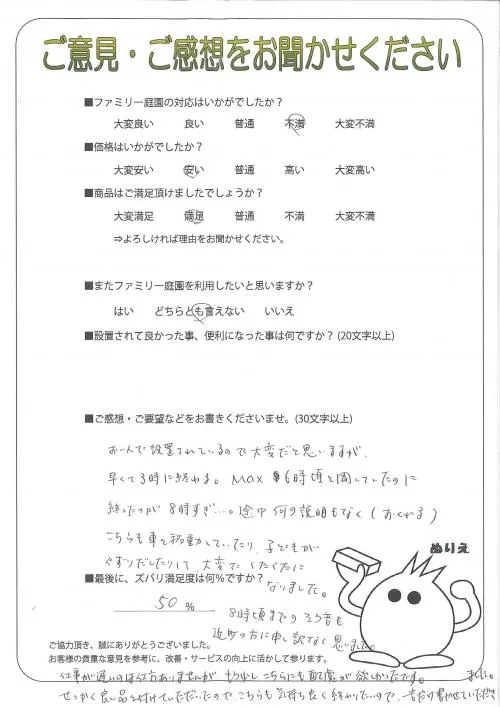 ご意見・ご感想をお聞かせください
■ファミリー庭園の対応はいかがでしたか？
大変良い 良い 普通 不満 大変不満
■価格はいかがでしたか？
大変安い 安い 普通 高い 大変高い
■商品はご満足頂けましたでしょうか？
大変満足 満足 普通 不満 大変不満
⇒よろしければ理由をお聞かせください。
■またファミリー庭園を利用したいと思いますか？
はい どちらとも言えない いいえ
■設置されて良かった事、便利になった事は何ですか？(20文字以上)
■ご感想・ご要望などをお書きくださいませ。(30文字以上)
お一人で設置されているので大変だと思いますが、
早くて3時に終わる。MAX 6時頃と聞いていたのに
終ったのが8時すぎ…。途中何の説明もなく(おくれる)
こちらも車を移動していたり、子どもが
ぐずりだしたりして、大変でくたくたに
なりました。
ぬりえ
■最後に、ズバリ満足度は何％ですか？
50 %
8時頃までのそう音も
近所の方に申し訳なく思いました。
ご協力頂き、誠にありがとうございました。
お客様の貴重な意見を参考に、改善・サービスの向上に活かして参ります。
仕事が遅いのは仕方ありませんが、もう少しこちらにも配慮が欲しかったです。
せっかく良い品を付けていただいたので、こちらも気持ち良く終わりたいので、一言だけ書かせていただき
ました。